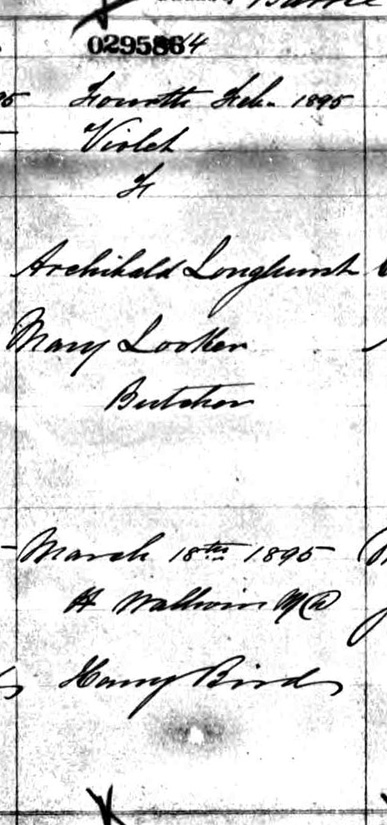 029586 64
Fourth Feb. 1895
Violet
F
Archibald Longhurst
Mary Looker
Butcher
March 18th 1895
Harry Bird